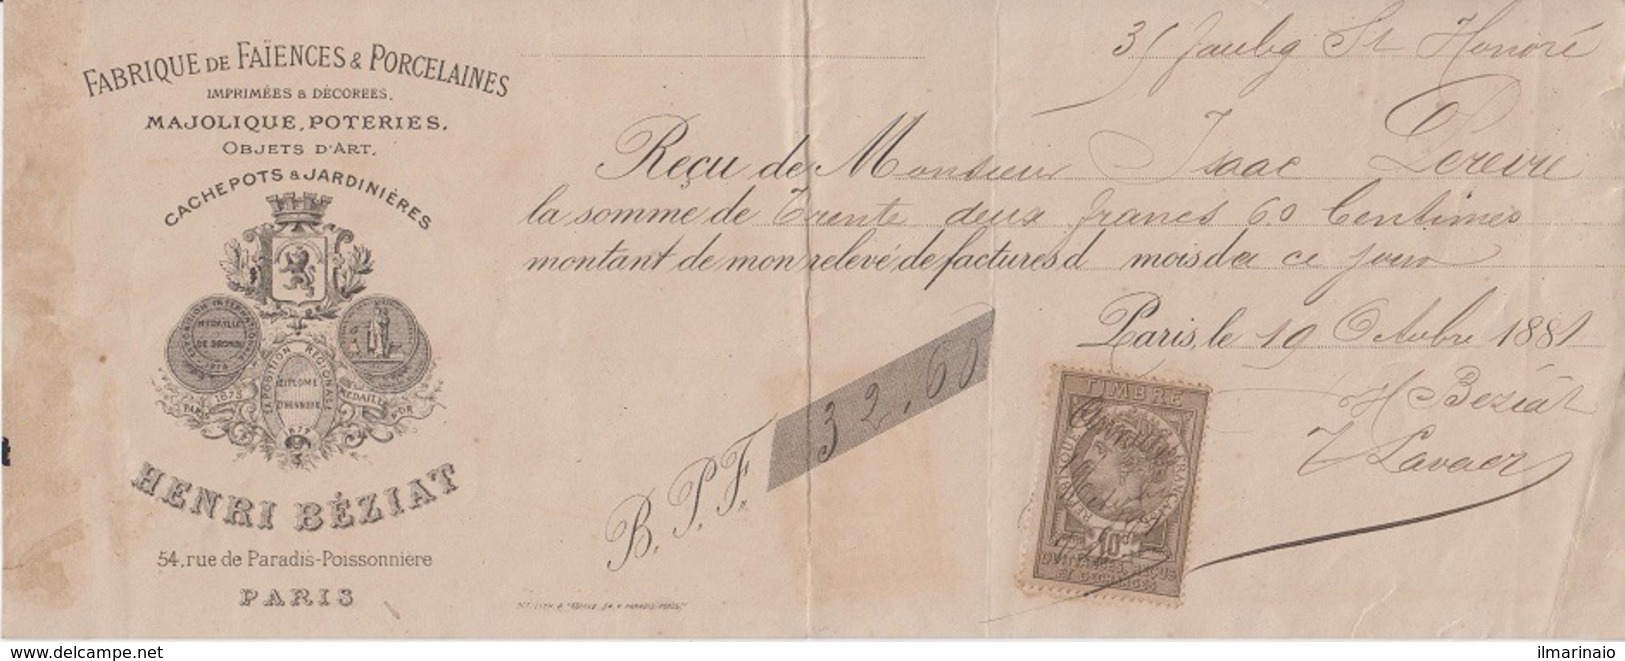 FABRIQUE DE FAÏENCES & PORCELAINES
IMPRIMÉES & DÉCORÉES.
MAJOLIQUE, POTERIES.
OBJETS D'ART.
CACHEPOTS & JARDINIÈRES
EXPOSITION INTERNATIONALE
MEDAILLE
DE BRONZE
PARIS 1875
EXPOSITION REGIONALE
DIPLOME
D'HONNEUR
MEDAILLE D'OR
HENRI BÉZIAT
54, rue de Paradis-Poissonnière
PARIS
35 Faubg St Honoré
Reçu de Monsieur Isaac Pereire
la somme de Trente deux francs 60 Centimes
montant de mon relevé de factures d mois de ce jour
Paris, le 19 Octobre 1881
H Béziat
B. P. F. 32,60
TIMBRE
REPUBLIQUE FRANÇAISE
10c
QUITTANCES, REÇUS
ET DECHARGES
www.delcampe.net
ilmarinaio